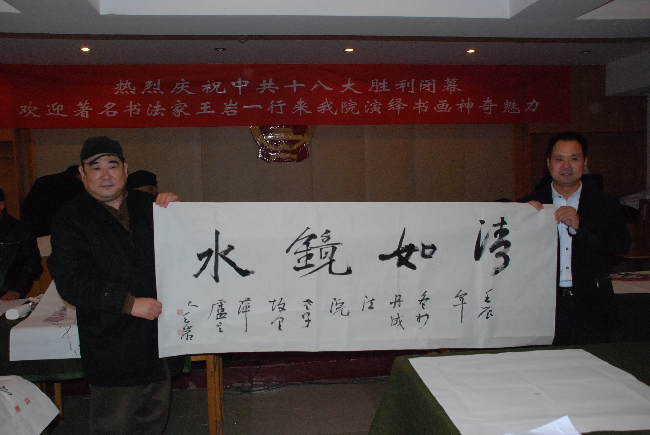 热烈庆祝中共十八大胜利闭幕
欢迎著名书法家王岩一行来我院演绎书画神奇魅力
清如镜水
壬辰
年
冬月
丹城
法
院